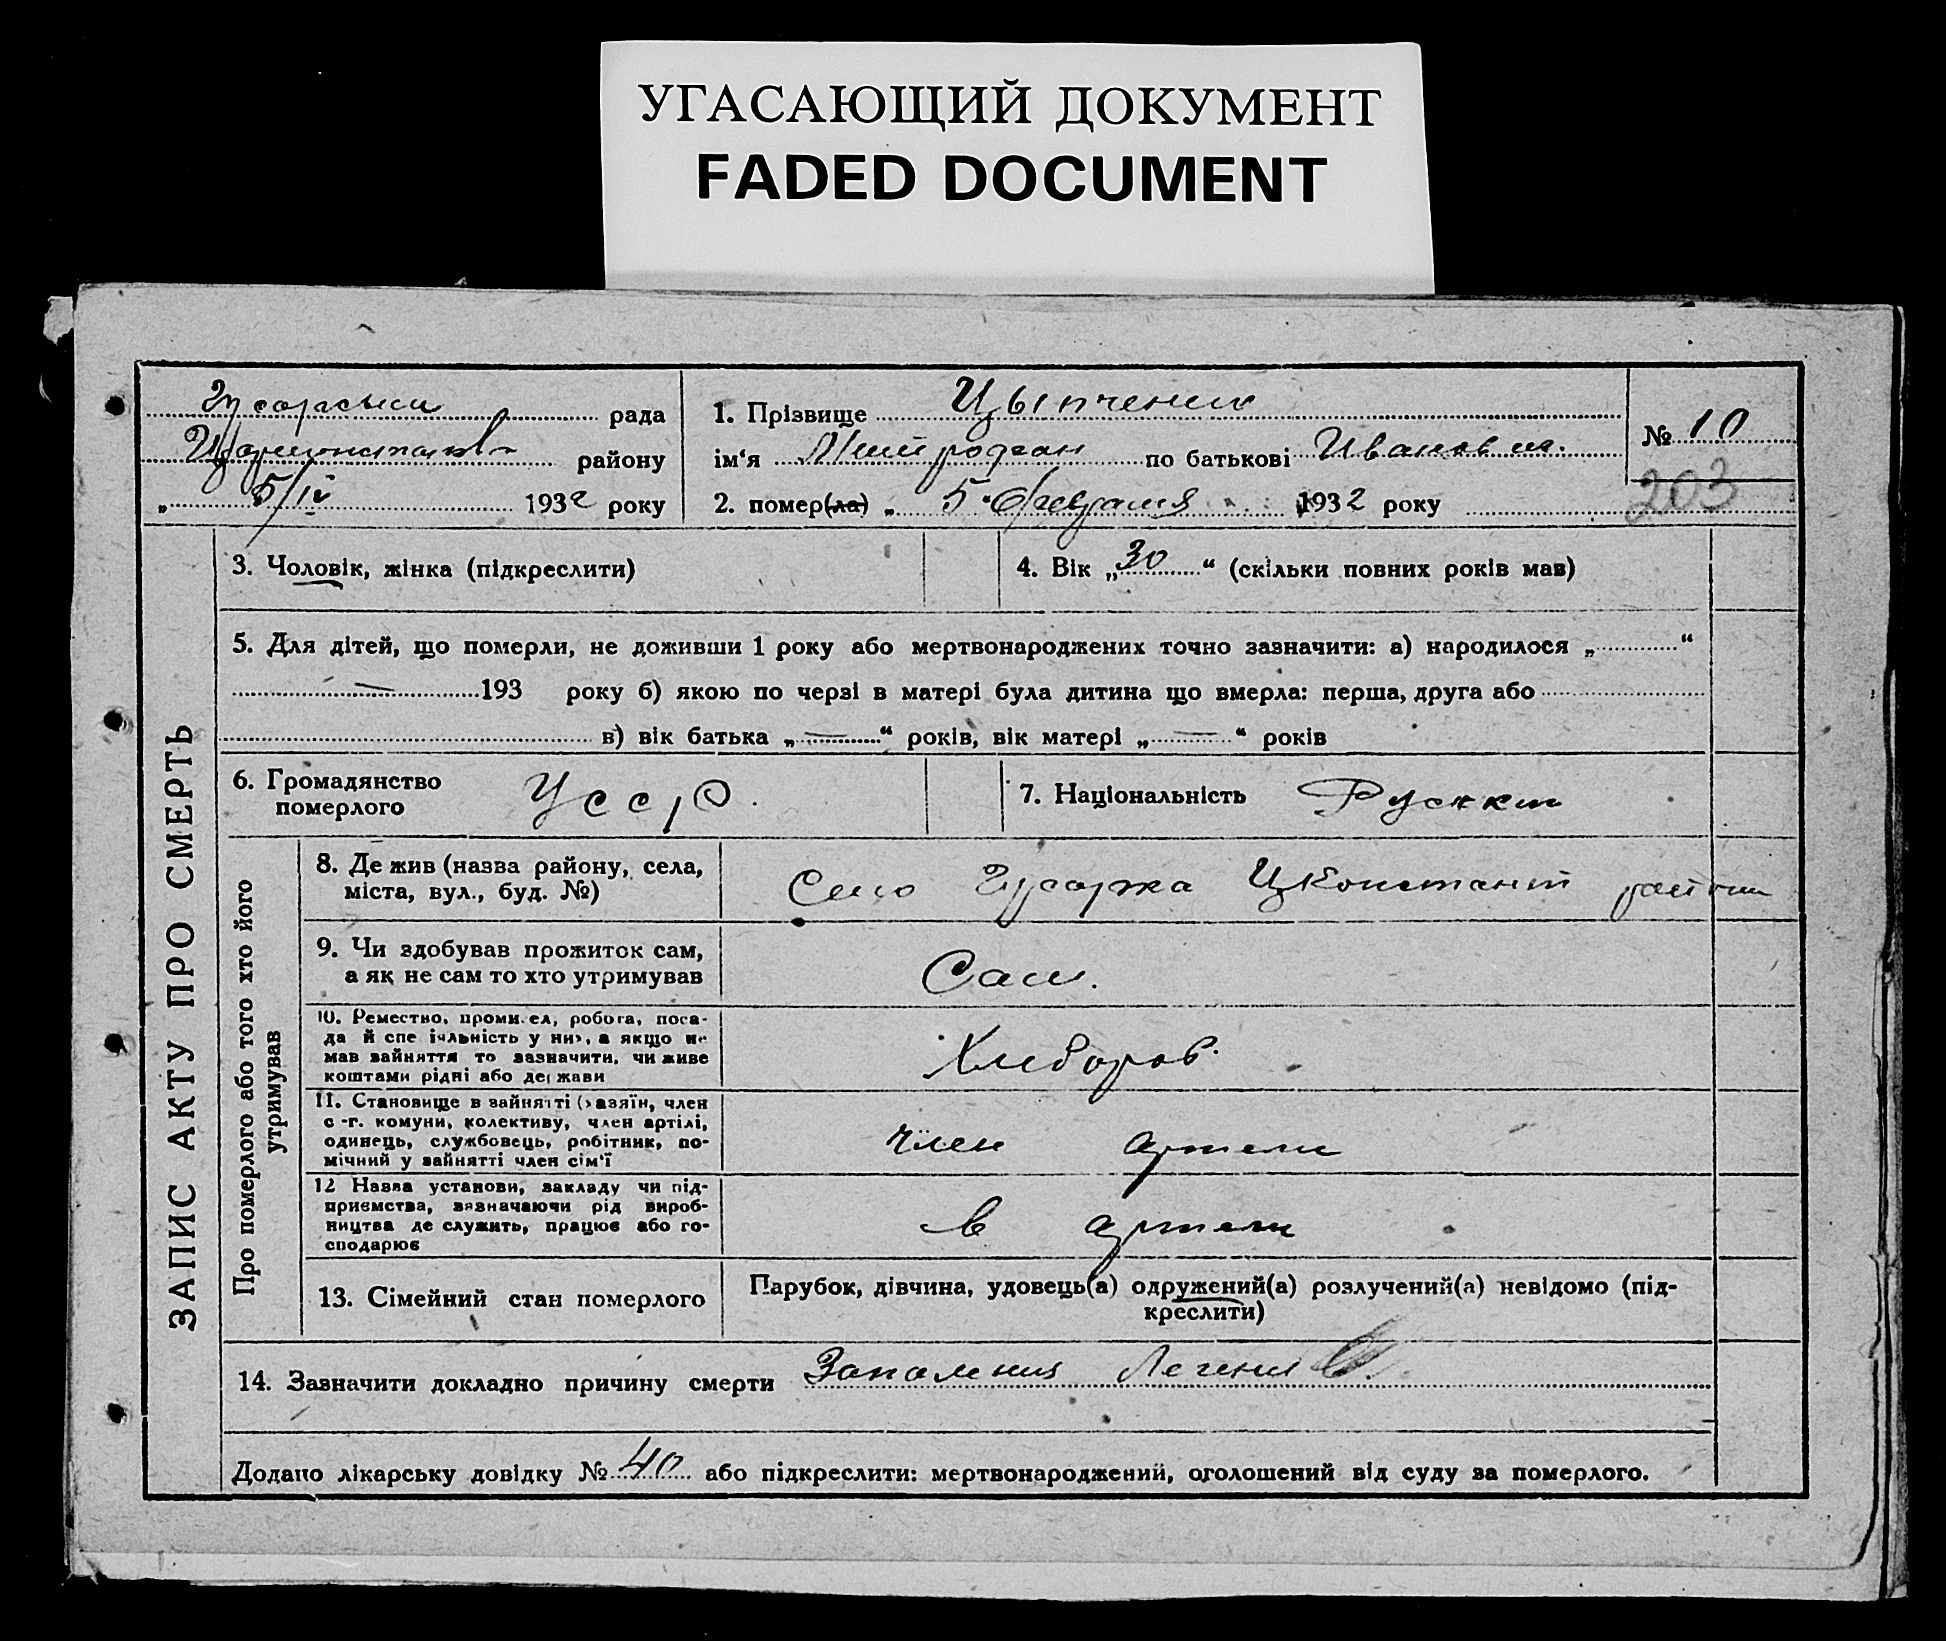 УГАСАЮЩИЙ ДОКУМЕНТ
FADED DOCUMENT
рада
району
„ 5/IV 1932 року
1. Прізвище
ім‘я по батькові Иванов
2. помер(ла) „ 5 февраля 1932 року
№ 10
203
ЗАПИС АКТУ ПРО СМЕРТЬ
3. Чоловік, жінка (підкреслити)
4. Вік „30“ (скільки повних років мав)
5. Для дітей, що померли, не доживши 1 року або мертвонароджених точно зазначити: а) народилося „ “
— 193 року б) якою по черзі в матері була дитина що вмерла: перша, друга або
в) вік батька „ — “ років, вік матері „ — “ років
6. Громадянство
померлого
УССР.
7. Національність
Про померлого або того хто його
утримував
8. Де жив (назва району, села,
міста, вул., буд. №)
Село Гусарка
9. Чи здобував прожиток сам,
а як не сам то хто утримував
Сам.
10. Ремество, промисел, робота, поса-
да й спеціяльність у ній, а якщо не
мав зайняття то зазначити, чи живе
коштами рідні або держави
Хлебороб.
11. Становище в зайнятті (хазяїн, член
с.-г. комуни, колективу, член артілі,
одинець, службовець, робітник, по-
мічний у зайнятті член сім‘ї
член артели
12 Назва установи, закладу чи під-
приємства, зазначаючи рід вироб-
ництва де служить, працює або го-
сподарює
в артели
13. Сімейний стан померлого
Парубок, дівчина, удовець(а) одружений(а) розлучений(а) невідомо (під-
креслити)
14. Зазначити докладно причину смерти
Додано лікарську довідку № 40 або підкреслити: мертвонароджений, оголошений від суду за померлого.